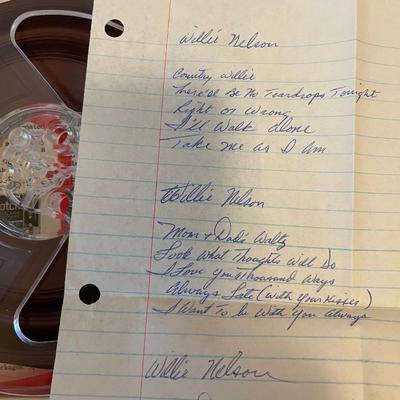 Willie Nelson
Country Willie
There'll Be No Teardrops Tonight
Right or Wrong
I'll Walk Alone
Take Me as I Am
Willie Nelson
Mom & Dad's Waltz
Look What Thoughts Will Do
I Love You Thousand Ways
Always Late (With Your Kisses)
I Want To be With You Always
Willie Nelson